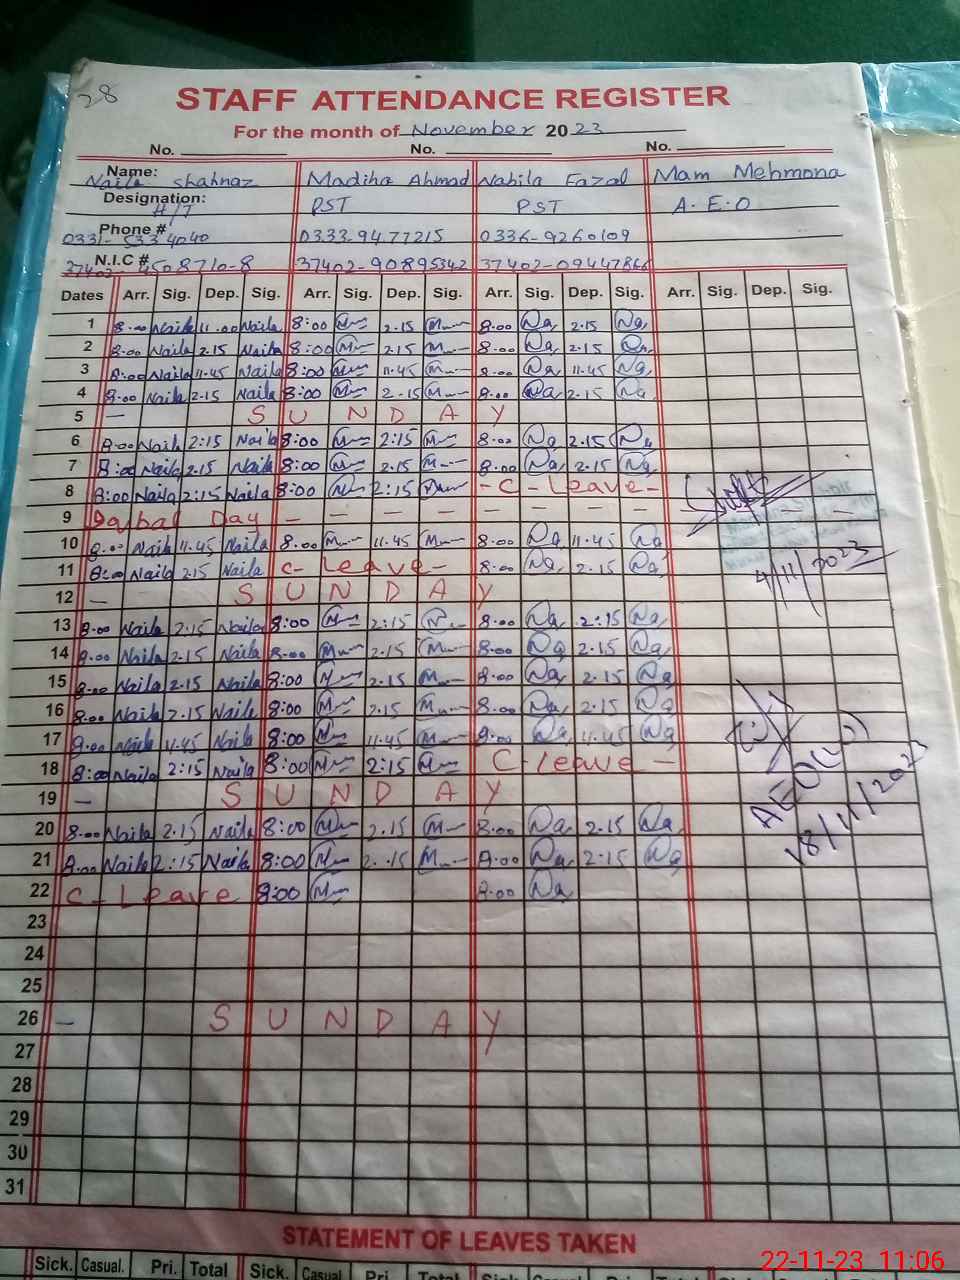 28
STAFF ATTENDANCE REGISTER
For the month of November 2023
No. No. No.
Name: Naila Shahnaz Madiha Ahmad Nabila Fazal Mam Mehmona
Designation: H/T PST PST A.E.O
Phone # 0331-5334040 0333-9477215 0336-9260109
N.I.C # 37402-4508710-8 37402-90895342 37402-09447866
Dates Arr. Sig. Dep. Sig. Arr. Sig. Dep. Sig. Arr. Sig. Dep. Sig. Arr. Sig. Dep. Sig.
1 8.00 Naila 11.00 Naila 8:00 M 2.15 M 8.00 Na 2.15 Na
2 8.00 Naila 2.15 Naila 8:00 M 2.15 M 8.00 Na 2.15 Na
3 8:00 Naila 11.45 Naila 8:00 M 11.45 M 8.00 Na 11.45 Na
4 8:00 Naila 2.15 Naila 8:00 M 2.15 M 8.00 Na 2.15 Na
5 — S U N D A Y
6 8:00 Naila 2:15 Naila 8:00 M 2:15 M 8.00 Na 2.15 Na
7 8:00 Naila 2.15 Naila 8:00 M 2.15 M 8.00 Na 2.15 Na
8 8:00 Naila 2:15 Naila 8:00 M 2:15 M - C - Leave -
9 Iqbal Day — — — — — — — — —
10 8.00 Naila 11.45 Naila 8.00 M 11.45 M 8.00 Na 11.45 Na
11 8:00 Naila 2.15 Naila C - Leave - 8.00 Na 2.15 Na
4/11/2023
12 — S U N D A Y
13 8.00 Naila 2.15 Naila 8:00 M 2:15 M 8.00 Na 2:15 Na
14 8.00 Naila 2.15 Naila 8.00 M 2.15 M 8.00 Na 2.15 Na
15 8.00 Naila 2.15 Naila 8:00 M 2.15 M 8.00 Na 2.15 Na
16 8:00 Naila 2.15 Naila 8:00 M 2.15 M 8.00 Na 2.15 Na
17 8:00 Naila 11.45 Naila 8:00 M 11.45 M 8:00 Na 11.45 Na
18 8:00 Naila 2:15 Naila 8:00 M 2:15 M C - Leave -
AEO(W)
18/11/2023
19 — S U N D A Y
20 8.00 Naila 2.15 Naila 8:00 M 2.15 M 8.00 Na 2.15 Na
21 8.00 Naila 2:15 Naila 8:00 M 2.15 M 8:00 Na 2:15 Na
22 C - Leave 8:00 M 8.00 Na
23
24
25
26 — S U N D A Y
27
28
29
30
31
STATEMENT OF LEAVES TAKEN
Sick. Casual. Pri. Total Sick. Casual Pri. Total Sick. Casual. Pri. Total
22-11-23 11:06